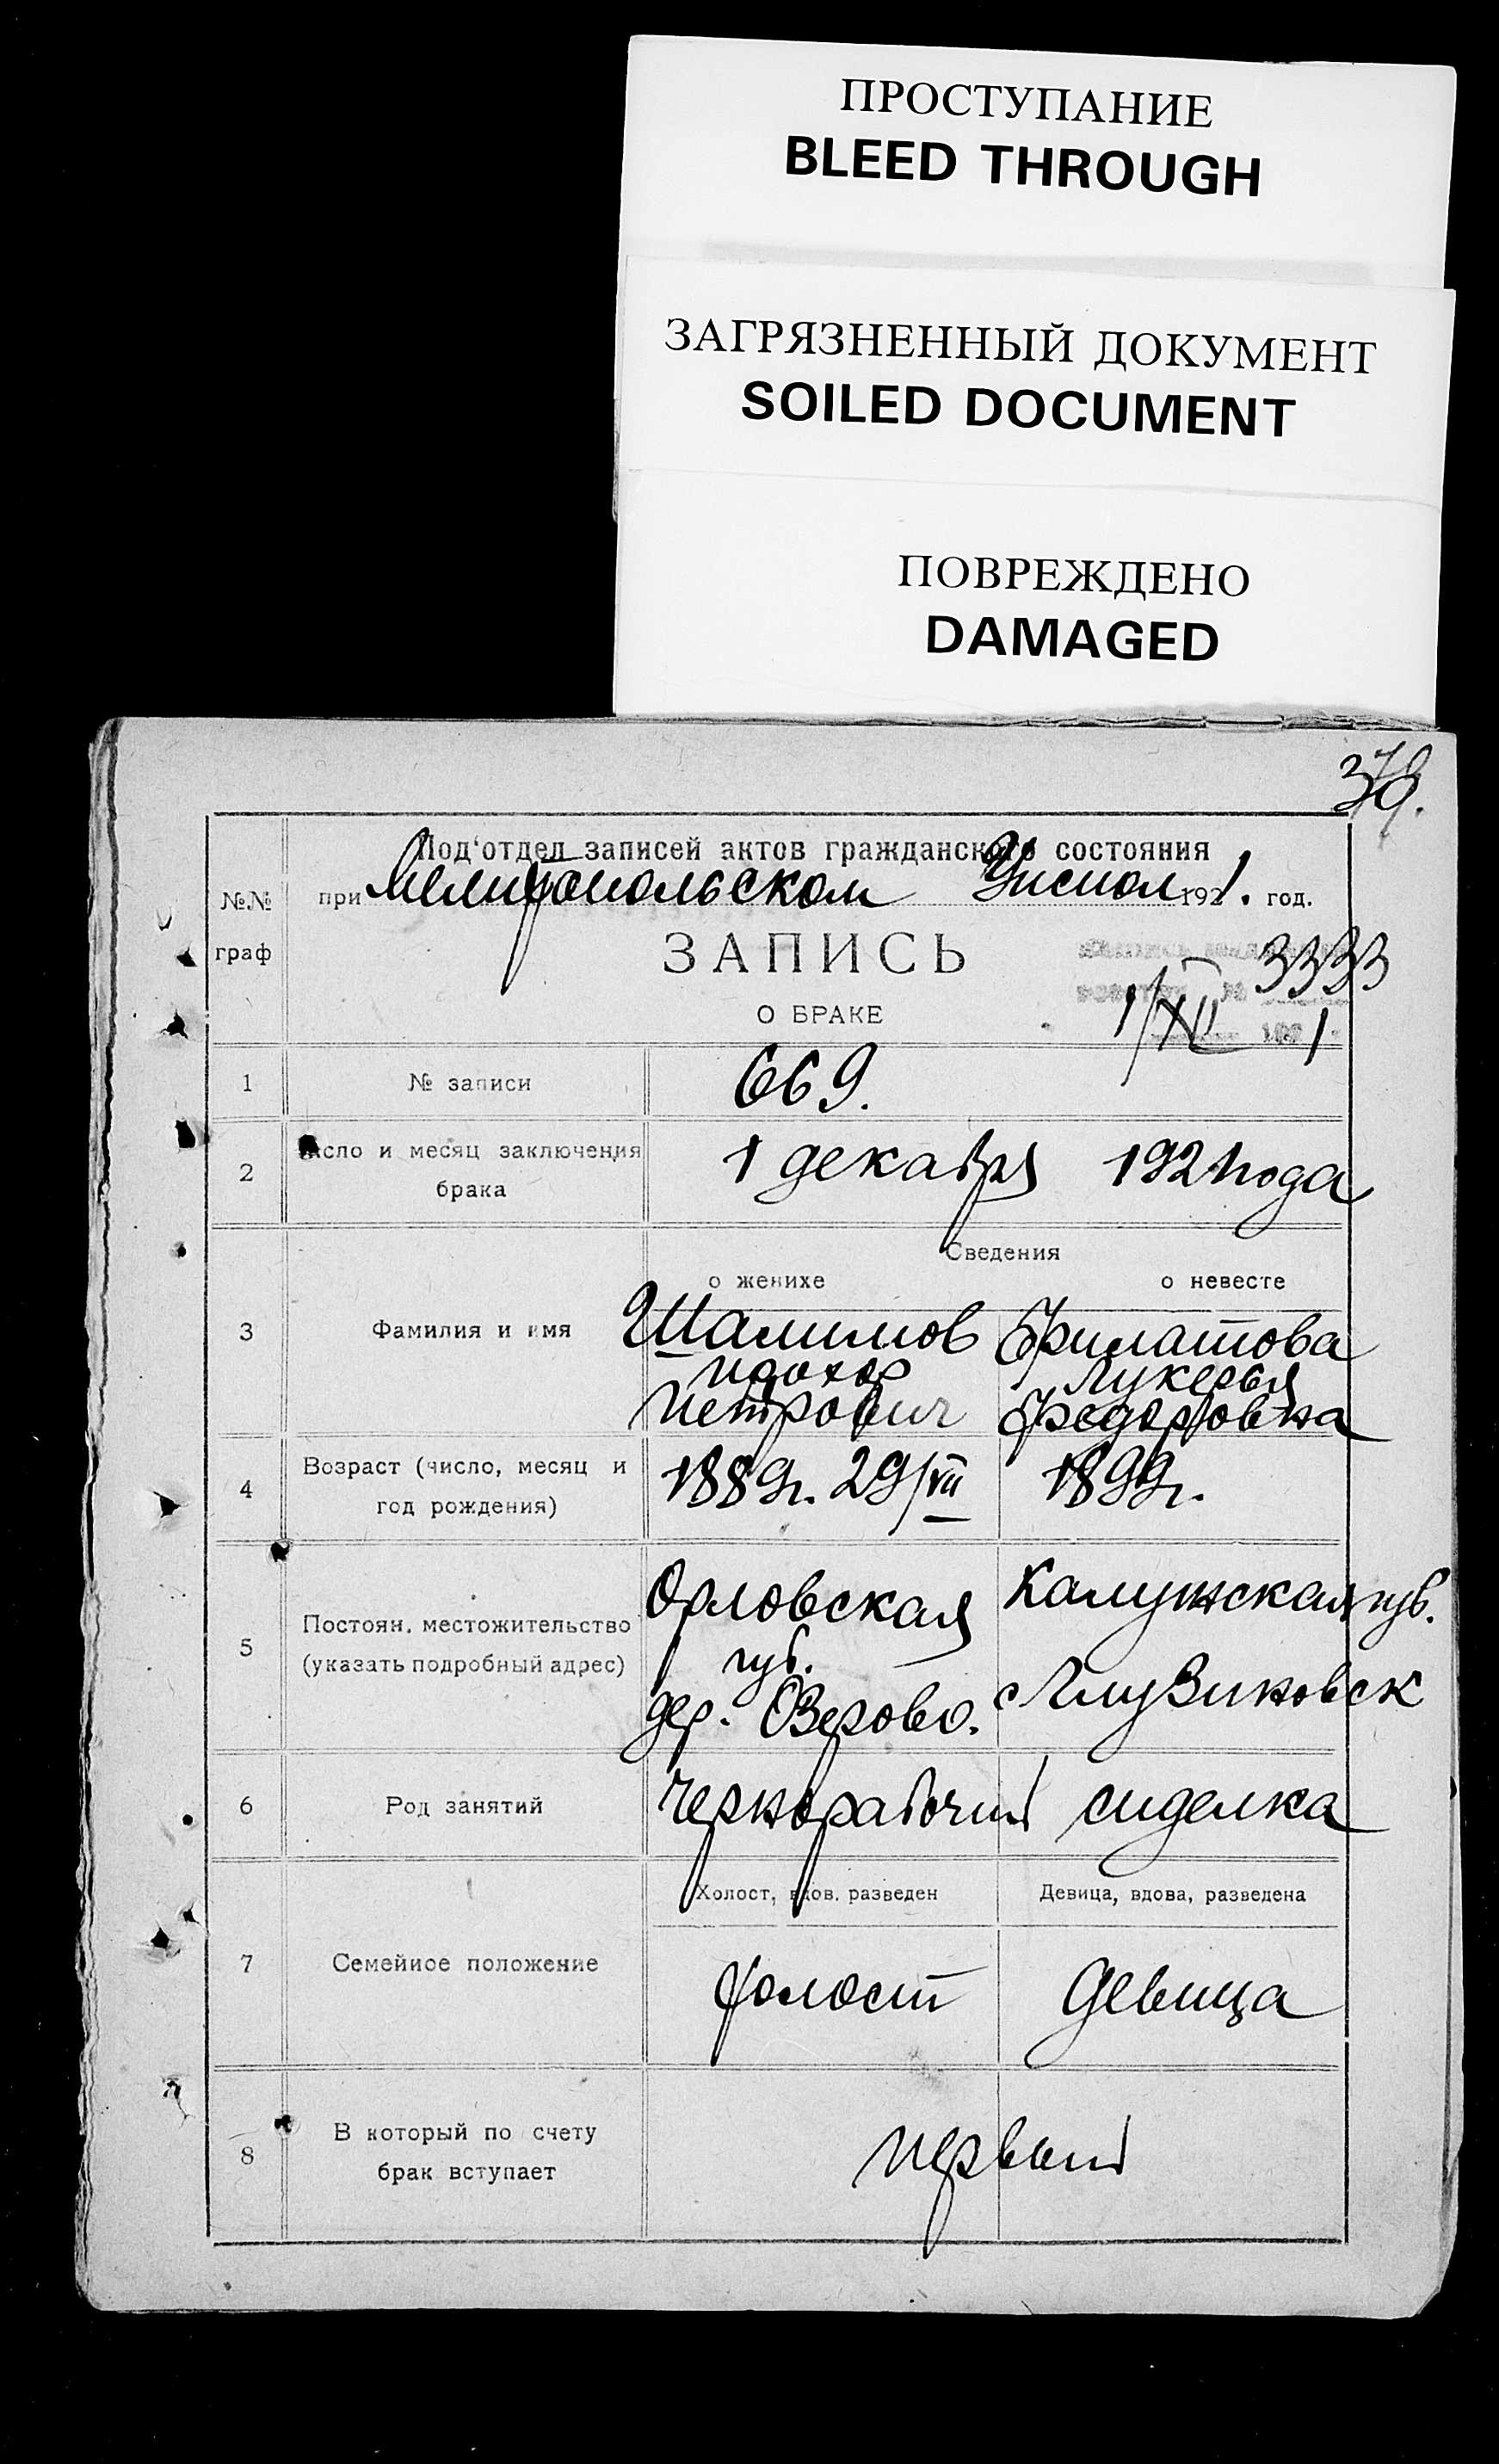 ПРОСТУПАНИЕ
BLEED THROUGH
ЗАГРЯЗНЕННЫЙ ДОКУМЕНТ
SOILED DOCUMENT
ПОВРЕЖДЕНО
DAMAGED
379.
Под'отдел записей актов гражданского состояния
№№ граф
при Мелитопольском Уисполк 1921. год.
ЗАПИСЬ
3333
О БРАКЕ
1/XII 1921
1 № записи 669.
2 Число и месяц заключения брака 1 декабря 1921 года
Сведения
о женихе о невесте
3 Фамилия и имя Шалимов Филатова
Прохор Лукерья
Петрович Федоровна
4 Возраст (число, месяц и год рождения) 1889г. 29/VII 1899г.
5 Постоян. местожительство (указать подробный адрес)
Орловская Калужская губ.
губ.
дер. Озерово.
6 Род занятий Чернорабочий сиделка
Холост, вдов, разведен Девица, вдова, разведена
7 Семейное положение холост девица
8 В который по счету брак вступает первый